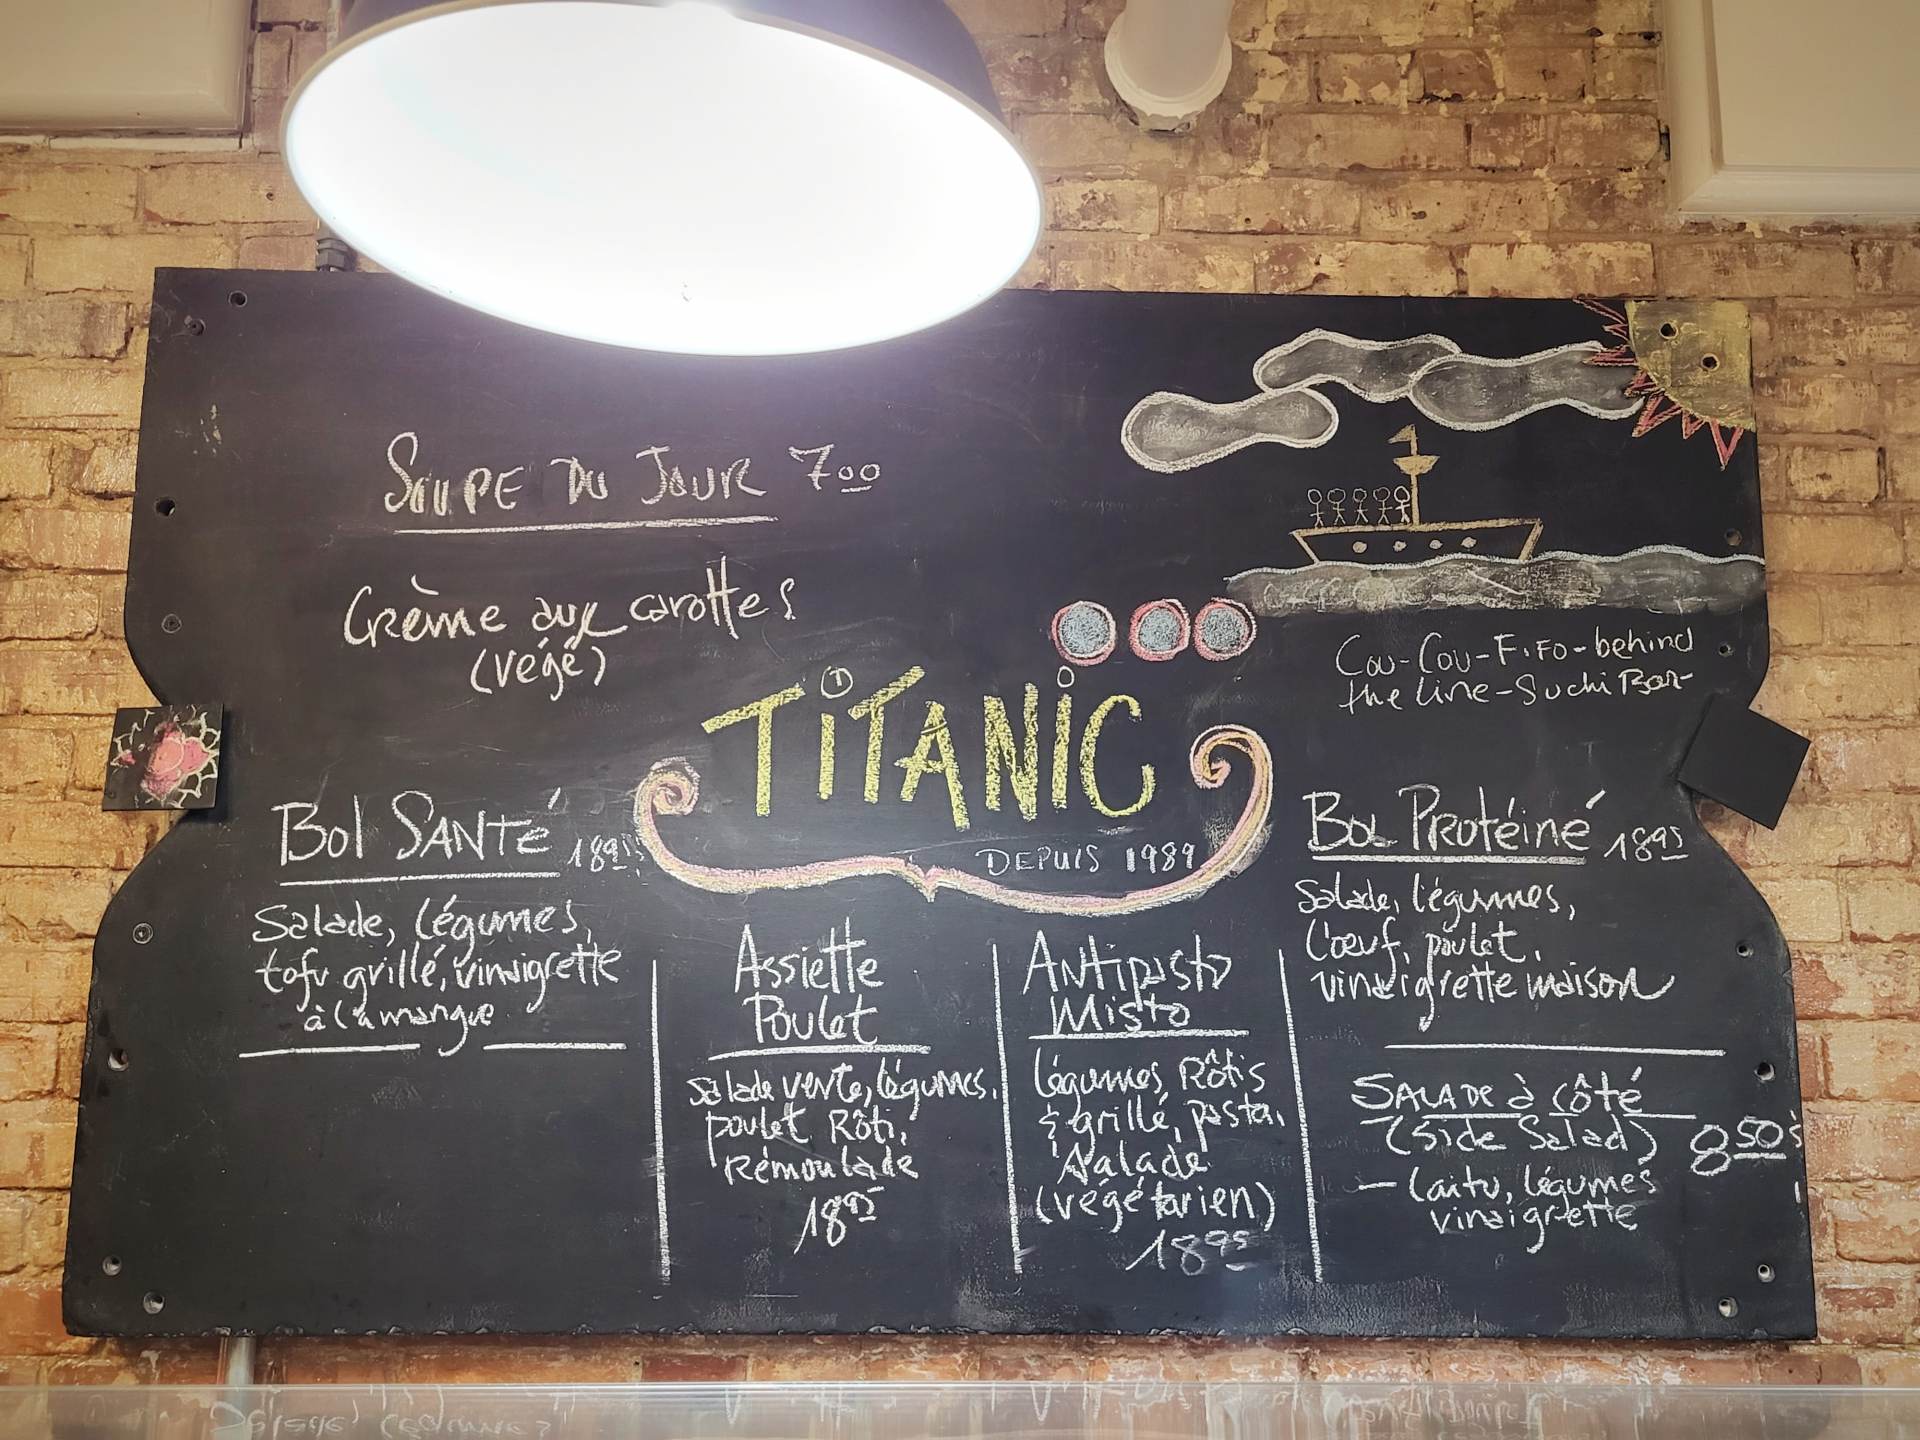 SOUPE DU JOUR 7.00
Crème aux carottes
(végé)
TiTANiC
DEPUIS 1989
Cou-Cou-Fifo-behind
the line-Suchi Bar-
Bol SANTé 18.95
Salade, légumes,
tofu grillé, vinaigrette
à la mangue
Assiette
Poulet
Salade verte, légumes,
poulet Rôti,
Rémoulade
18.95
Antipasto
Misto
légumes Rôtis
& grillé, pasta,
Salade
(végétarien)
18.95
Bol Protéiné 18.95
Salade, légumes,
l'oeuf, poulet,
vinaigrette maison
SALADE à côté
(Side Salad) 8.50
— laitu, légumes
vinaigrette